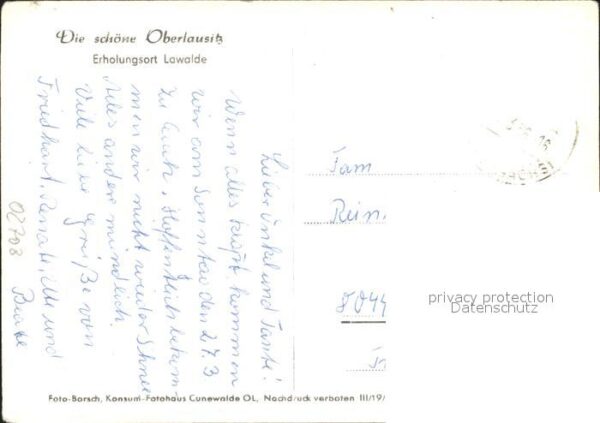 Die schöne Oberlausitz
Erholungsort Lawalde
Lieber Onkel und Tante!
Wenn alles klappt kommen
wir am Sonntag den 27.3
zu Euch. Hoffentlich bekom
men wir nicht wieder Schnee
Alles andere mündlich.
Viele liebe Grüße von
Friedhart, Renate, und
Beate
02708
Fam
Rein
privacy protection
Datenschutz
Foto-Borsch, Konsum-Fotohaus Cunewalde OL, Nachdruck verboten III/19/